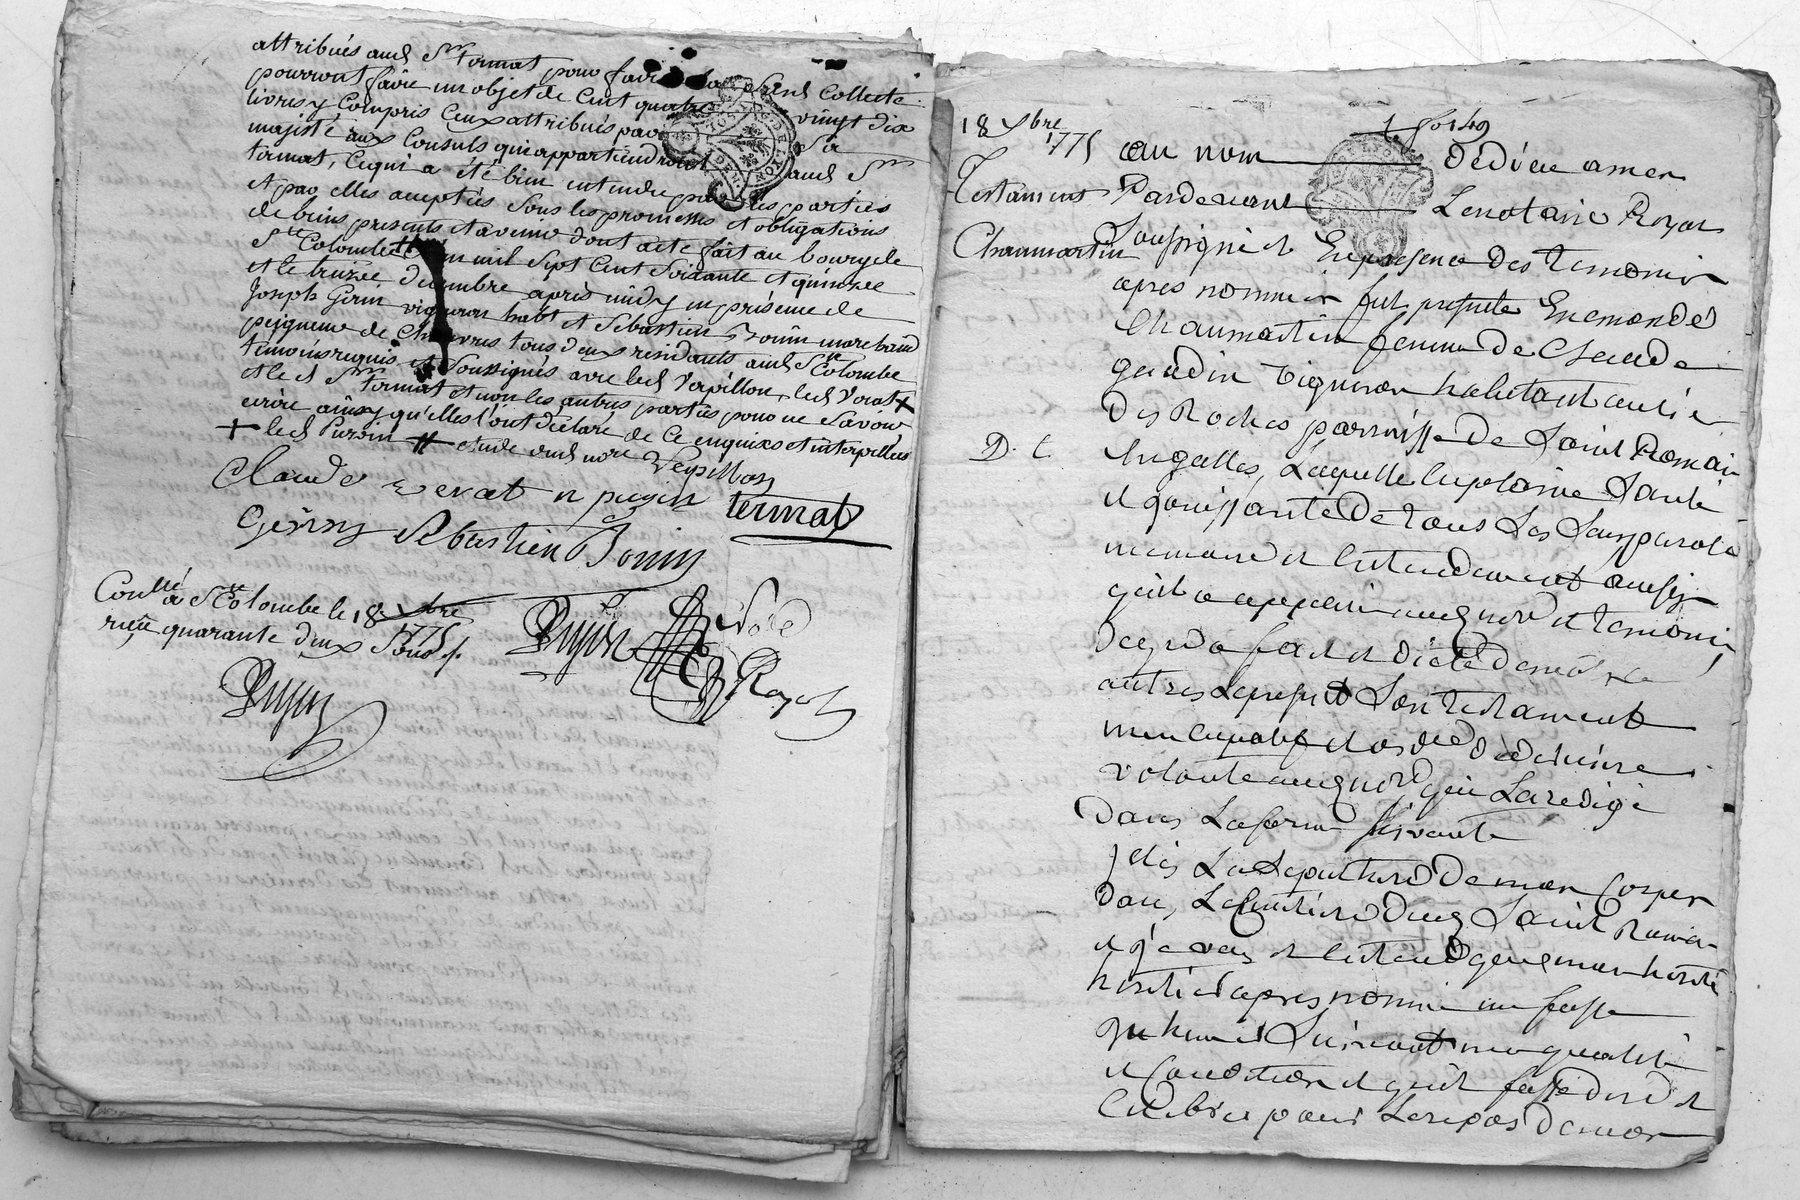 attribués aud Sr termat pour faire la pred collecte
pourront faire un objet de Cent quatre vingt dix
livres y Compris Ceux attribués par Sa
majesté aux Consuls qui appartiendront aud Sr
termat, Ce qui a été bien entendu par les parties
et par elles acceptés Sous les promesses et obligations
de biens presents et avenir dont acte fait au bourg de
Ste Colombe # mil Sept Cent Soixante et quinze
et le treize decembre après midy en présence de
Joseph Gerin vigneron habt et Sebastien Bonin marchand
peigneur de Chanvres tous deux residants aud Ste Colombe
témoins requis et Soussignés avec led Verpillon, led Verat +
et led Sr termat et non les autres parties pour ne Savoir
écrire ainsy qu'elles l'ont déclaré de Ce enquises et interpellées
+ led Puzin # etude dud nore Verpillon
Claude verat n puzin termat
Gérin Sebastien Bonin
Conllé à Ste Colombe le 18 xbre
1775
reçu quarante deux Sous
18 xbre
1775
fo 149
au nom de dieu amen
Testament Pardevant Le notaire Royal
Chaumartin Soussigné et En presence des temoins
apres nommés fut presente Enemonde
Chaumartin femme de Claude
gaudin vigneron habitant au lieu
des Roches parroisse de Saint Romain
D. C.
En galles, Laquelle En pleine Santé
et jouissante de tous Ses Sens parole
memoire et Entendement ainsy
qu'il a apparu aud nore et temoins,
de gré a fait et dicté
autres Le present Son testament
volonté aud nore qui La redigé
dans La forme Suivante
Jelis La Sepulture de mon Corps
dans Le Cimetiere dud Saint Romain
et je veux et Entend que mon heritier
heritier apres nommé me fasse
inhumer Suivant ma qualité
et Condition et qu'il fasse dire et
Celebrer pour Le repos de mon